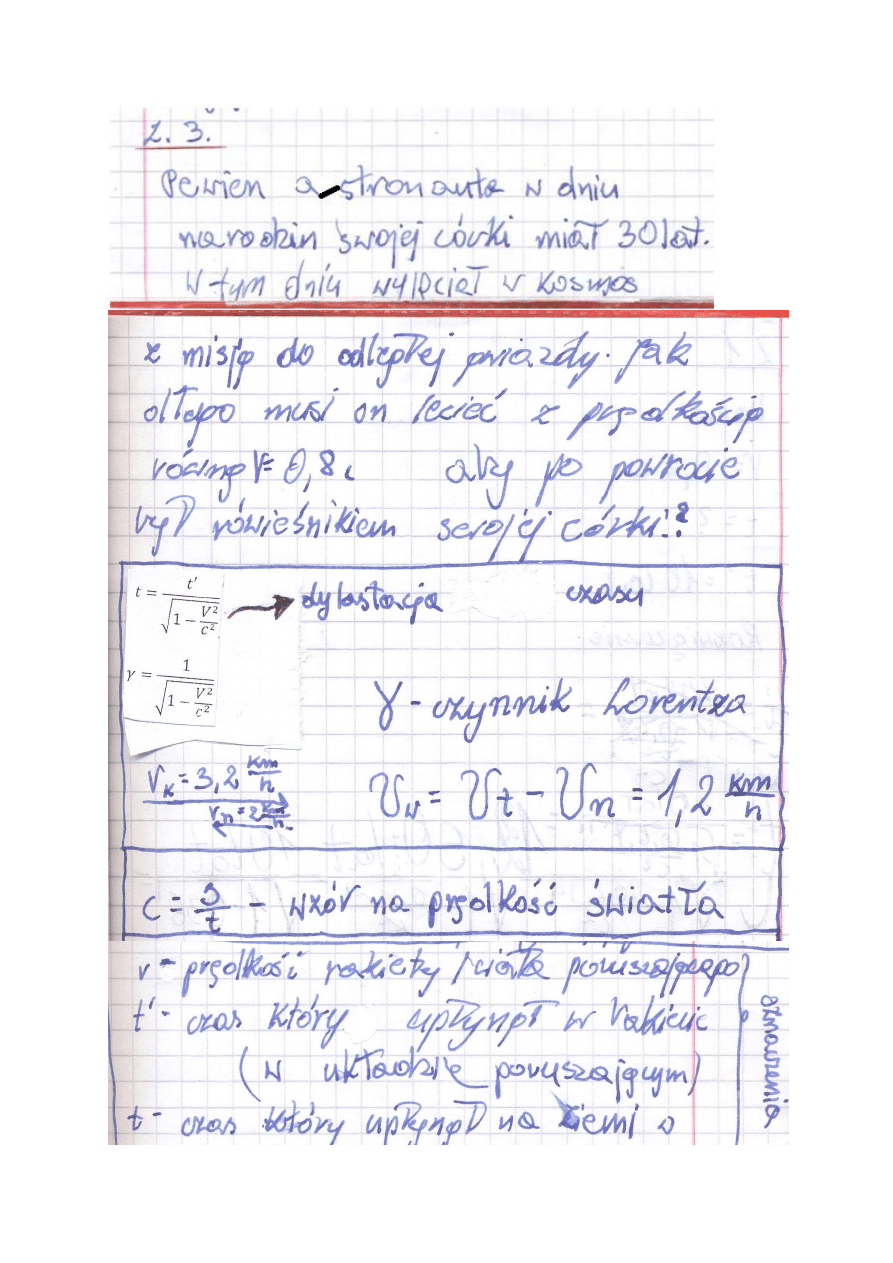 Z. 3.
Pewien astronauta w dniu
narodzin swojej córki miał 30 lat.
W tym dniu wyleciał w kosmos
z misją do odległej gwiazdy. Jak
długo musi on lecieć z prędkością
równą V= 0,8 c aby po powrocie
był rówieśnikiem swojej córki?
t = t' / √(1 − V²/c²) → dylatacja czasu
γ = 1 / √(1 − V²/c²)
γ - czynnik Lorentza
V_k = 3,2 km/h
V_n = 2 km/h
V_w = V_t - V_n = 1,2 km/h
c = s/t - wzór na prędkość światła
v - prędkość rakiety / ciała poruszającego
t' - czas który upłynął w rakiecie
(w układzie poruszającym)
t - czas który upłynął na Ziemi w
oznaczenia